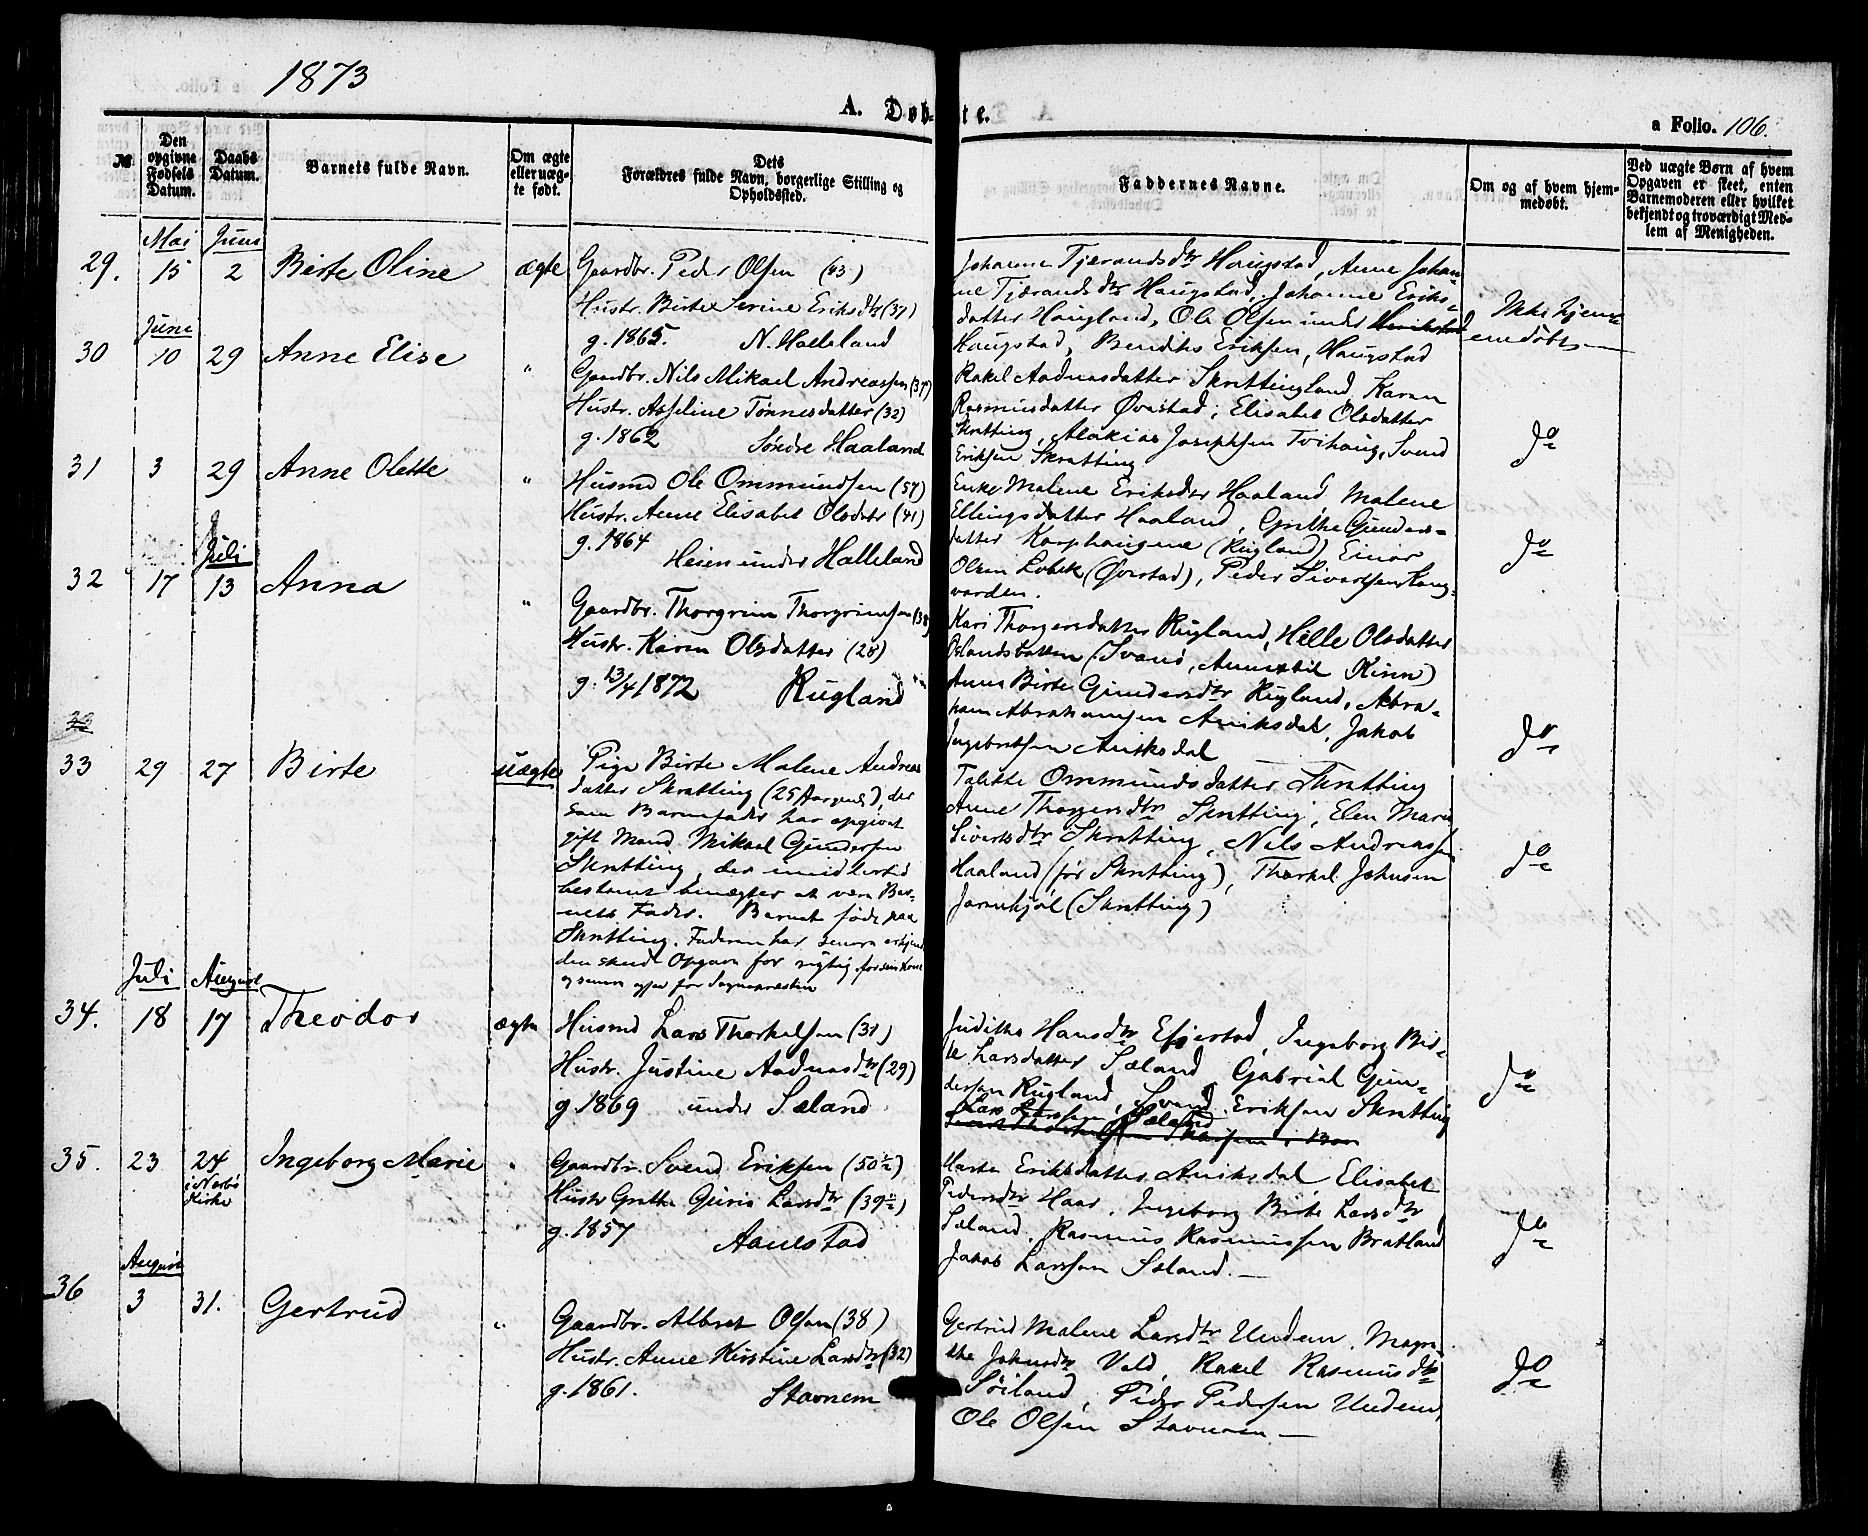 1873
A. Døb-te.
a Folio. 106.
№
Den opgivne Fødsels Datum.
Daabs Datum.
Barnets fulde Navn.
Om ægte eller uæg-te født.
Dets Forældres fulde Navn, borgerlige Stilling og Opholdssted.
Faddernes Navne.
Om og af hvem hjem-medøbt.
Ved uægte Børn af hvem Opgaven er skeet, enten Barnemoderen eller hvilket bekjendt og troværdigt Med-lem af Menigheden.
Mai Juni
29. 15 2 Birte Oline ægte
Gaardbr. Peder Olsen (43)
Hustr. Birte Serine Eriksdtr (37)
g. 1865. N. Halleland
Johanne Tjerandsdtr Haugstad, Anne Johan-
ne Tjærandsdtr Haugstad, Johanne Eriks-
datter Haugland, Ole Olsen under
Haugstad, Bendiks Eriksen, Haugstad
Ikke hjem-
medøbt
Juni
30 10 29 Anne Elise "
Gaardbr. Nils Mikael Andreassen (37)
Hustr. Asseline Tønnesdatter (32)
g. 1862 Søndre Haaland
Rakel Aadnasdatter Skrettingland, Karen
Rasmusdatter Øvestad, Elisabet Olsdatter
Skretting, Malakias Josephsen Tvihaug, Svend
Eriksen Skretting
do
31 3 29 Anne Olette "
Husmd Ole Ommundsen (57)
Hustr. Anne Elisabet Olsdatr (41)
g. 1864
Heien under Halleland
Enke Malene Eriksdtr Haaland, Malene
Ellingsdatter Haaland, Grethe Gunders-
datter Korphaugene (Rugland), Einar
Olsen Lobek (Øvestad), Peder Sivertsen Kong-
varden.
do
Juli
32 17 13 Anna "
Gaardbr. Thorgrim Thorgrimsen (38)
Hustr. Karen Olsdatter (28)
g. 13/4 1872 Rugland
Kari Thorgersdatter Rugland, Helle Olsdatter
(Svanø, Annextil Kinn)
Anne Birte Gundersdtr Rugland, Abra-
ham Abrahamsen Aniksdal, Jakob
Ingebretsen Aniksdal
do
33 29 27 Birte uægte
Pige Birte Malene Andreas
datter Skretting (25 Aar gml), der
som Barnefader har opgivet
gift Mand Mikael Gundersen
Skretting, der imidlertid
bestemt benægter at være Bar-
nets Fader. Barnet født paa
Skretting. Faderen har senere erkjendt
den skeede Opgave for rigtig for sin Kone
og senere ogsaa for Sognepresten
Talette Ommundsdatter Skretting
Anne Thorgersdtr Skretting, Elen Marie
Sivertsdtr Skretting, Nils Andreassen
Haaland (før Skretting), Thorkel Johnsen
Jernkjøl (Skretting)
do
Juli August
34. 18 17 Theodor ægte
Husmd Lars Thorkelsen (31)
Hustr. Justine Aadnasdtr (29)
g. 1869 under Sæland
Juditha Hansdtr Efjestad, Ingeborg Bir-
te Larsdatter Sæland, Gabriel Gun-
dersen Rugland, Svend Eriksen Skretting
Lars Larssen Sæland
do
35. 23 24 Ingeborg Marie "
i Nærbø
Kirke
Gaardbr. Svend Eriksen (50½)
Hustr Grethe Gurie Larsdtr (39½)
g. 1857 Aanestad
Marta Eriksdatter Aniksdal, Elisabet
Pedersdtr Haar, Ingeborg Birte Larsdtr
Sæland, Rasmus Rasmussen Bratland
Jakob Larssen Sæland. —
do
August
36 3 31. Gertrud "
Gaardbr. Albret Olsen (38)
Hustr. Anne Kirstine Larsdtr (32)
g. 1861. Stavnem
Gertrud Malene Larsdtr Undem, Magre-
the Johnsdtr Vold, Rakel Rasmusdtr
Søiland, Peder Pedersen Undem,
Ole Olsen Stavnem —
do